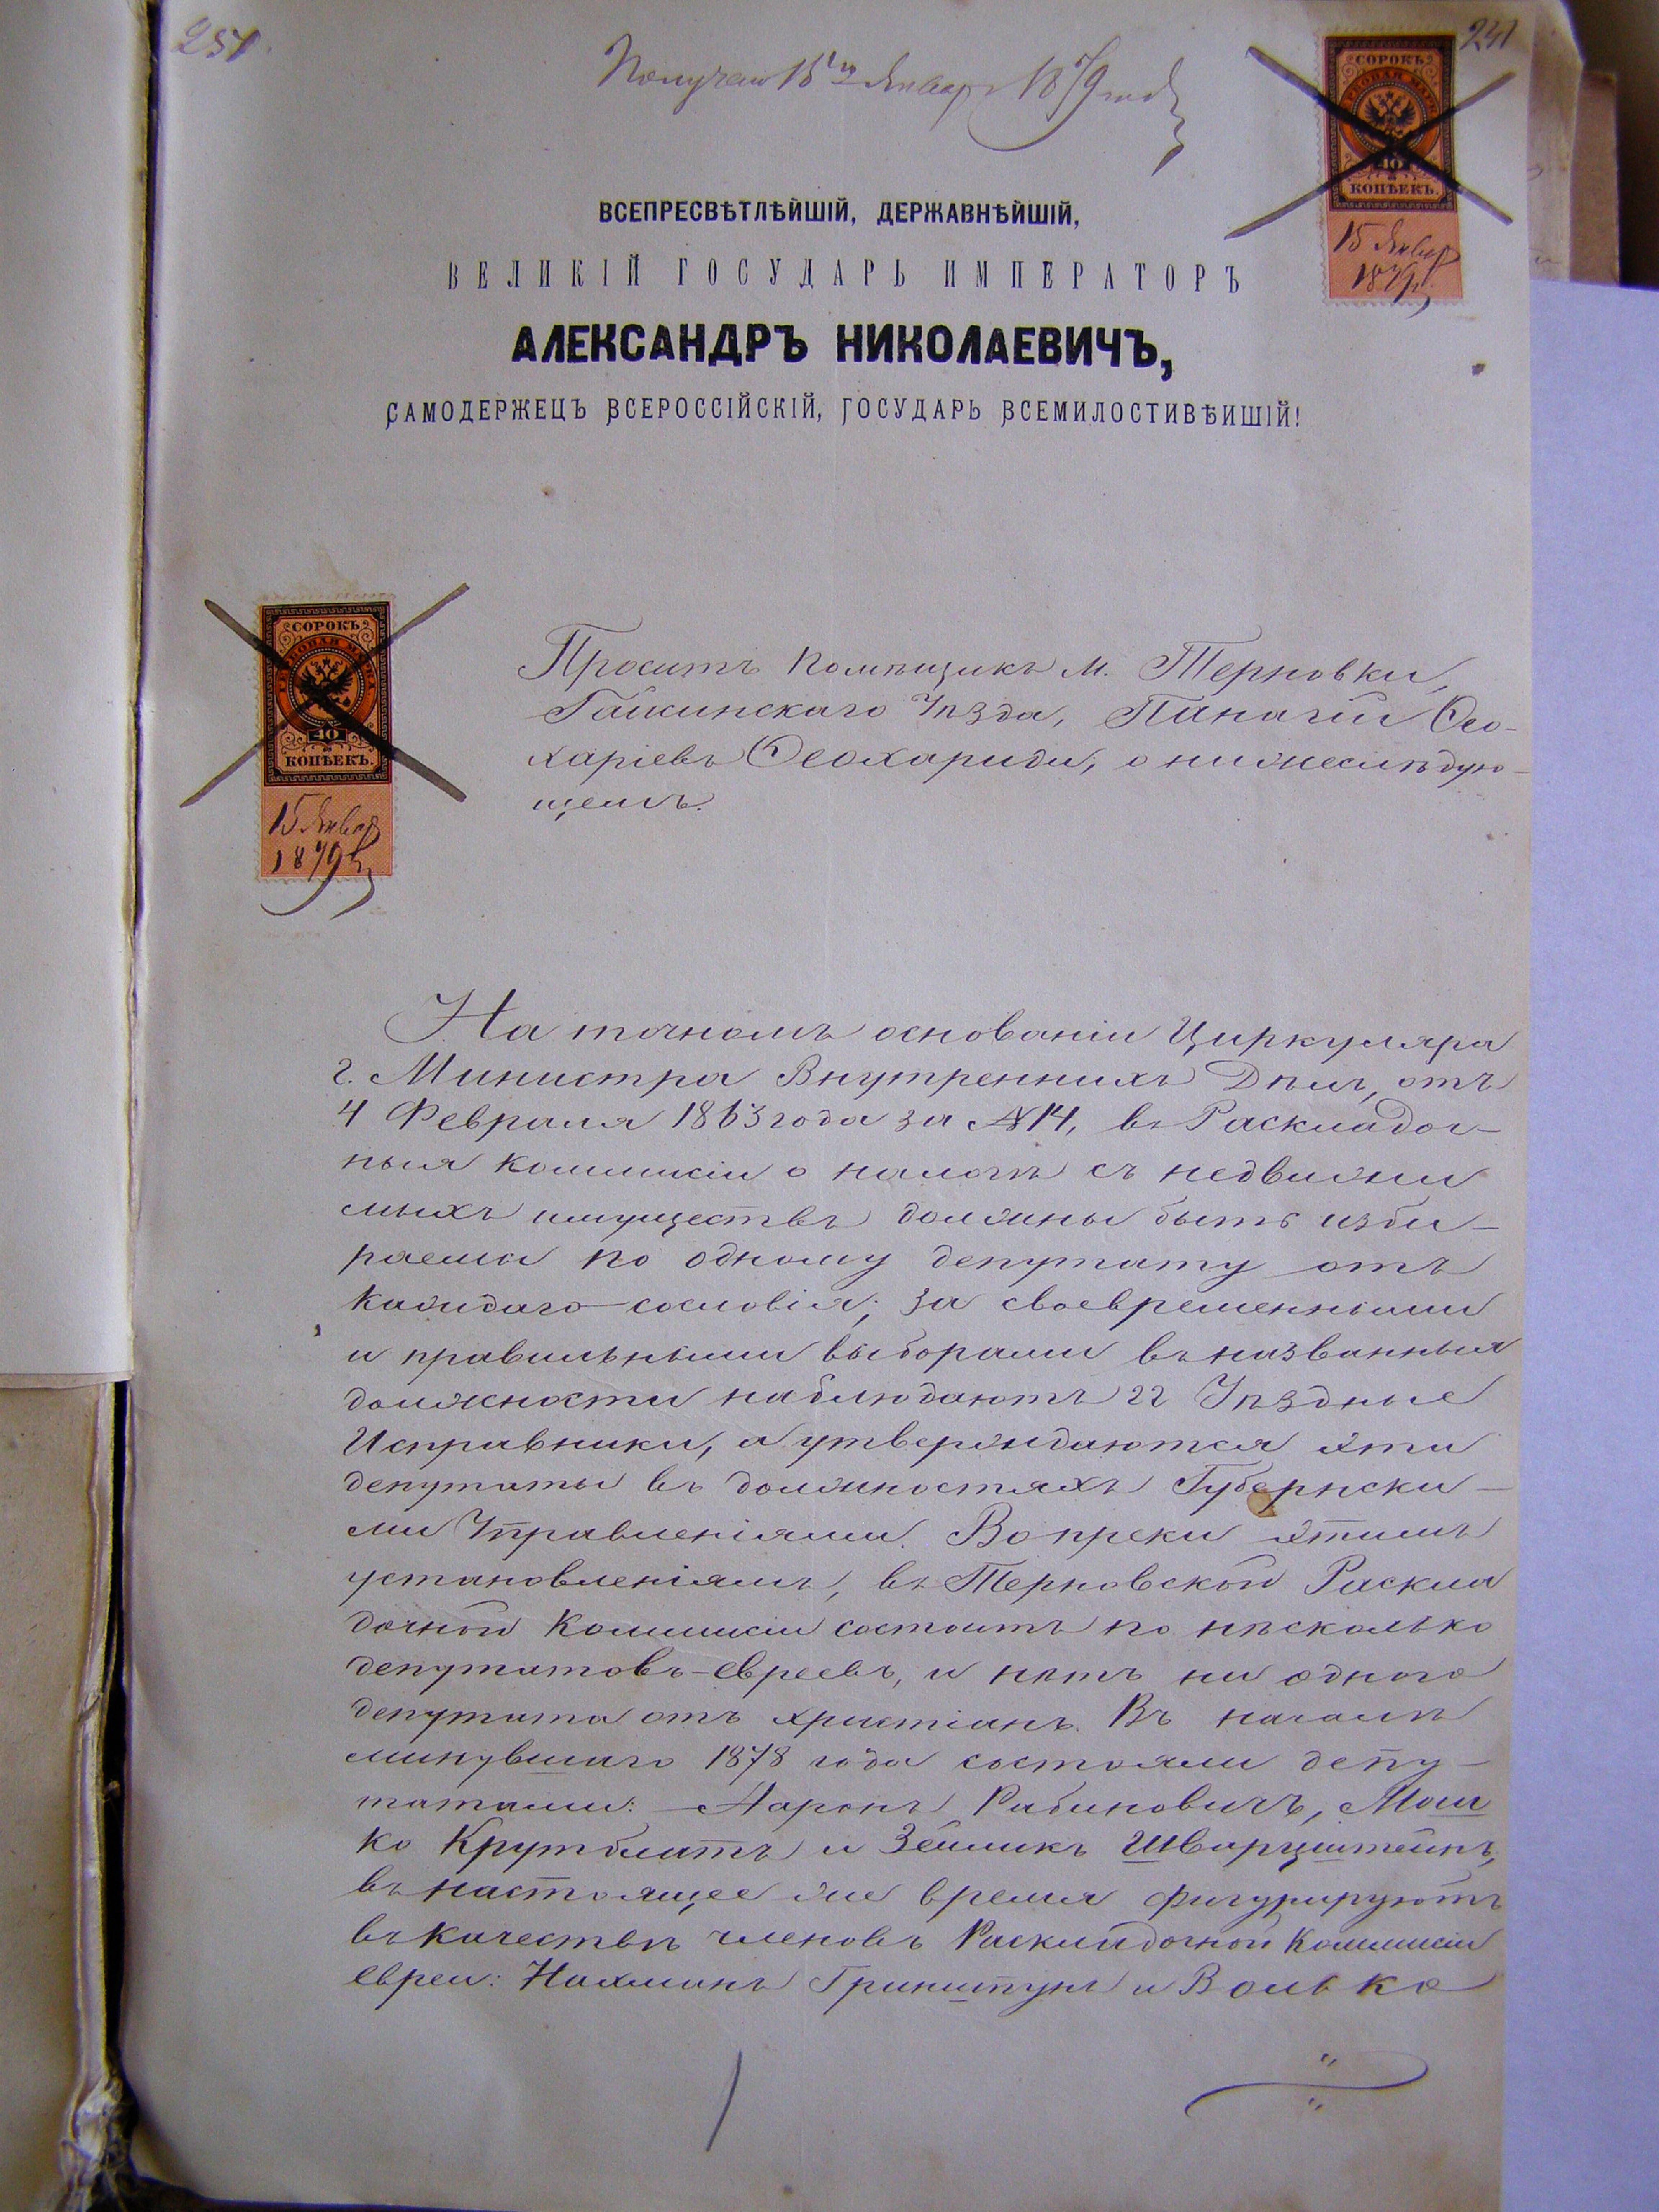 251.
241
Получено 15го Января 1879 года
СОРОКЪ
ГЕРБОВАЯ МАРКА
40
КОПѢЕКЪ.
15 Января
1879 г.
ВСЕПРЕСВѢТЛѢЙШІЙ, ДЕРЖАВНѢЙШІЙ,
ВЕЛИКІЙ ГОСУДАРЬ ИМПЕРАТОРЪ
АЛЕКСАНДРЪ НИКОЛАЕВИЧЪ,
САМОДЕРЖЕЦЪ ВСЕРОССІЙСКІЙ, ГОСУДАРЬ ВСЕМИЛОСТИВѢИШІЙ!
СОРОКЪ
ГЕРБОВАЯ МАРКА
40
КОПѢЕКЪ.
15 Января
1879 г.
Проситъ Помѣщикъ м. Терновки,
Гайсинскаго Уѣзда, Панагій Ѳео-
харіевъ Ѳеохариди, о нижеслѣдую-
щемъ.
На точномъ основаніи Циркуляра
г. Министра Внутреннихъ Дѣлъ, отъ
4 Февраля 1863 года за № 14, въ Раскладоч-
ныя Коммисіи о налогѣ съ недвижи
мыхъ имуществъ должны быть изби-
раемы по одному депутату отъ
каждаго сословія; за своевременными
и правильными выборами въ названныя
должности наблюдаютъ гг Уѣздные
Исправники, а утверждаются эти
депутаты въ должностяхъ Губернски-
ми Управленіями. Вопреки этимъ
установленіямъ, въ Терновской Раскла
дочной Коммисіи состоитъ по нѣсколько
депутатовъ-евреевъ, и нѣтъ ни одного
депутата отъ христіанъ. Въ началѣ
минувшаго 1878 года состояли депу-
татами: Ааронъ Рабиновичъ, Мош
ко Крутблатъ и Зейликъ Шварцштейнъ,
въ настоящее же время фигурируютъ
въ качествѣ членовъ Раскладочной Коммисіи
евреи: Нахманъ Гринштунъ и Волько